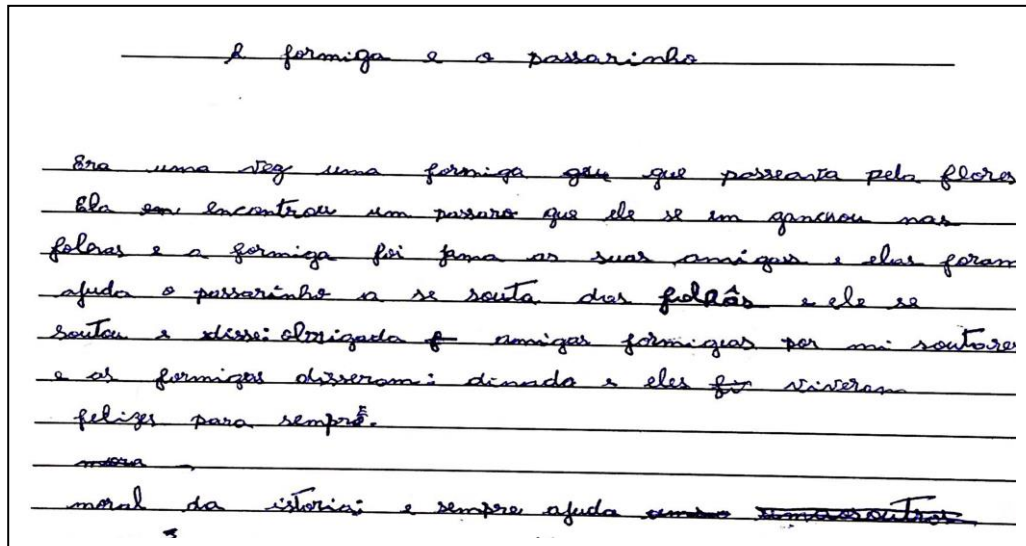 A formiga e o passarinho
Era uma vez uma formiga que passeava pela flores
Ela encontrou um passaro que ele se em ganchou nas
folras e a formiga foi para as suas amigas e elas foram
ajuda o passarinho a se souta das folhâs e ele se
soutou e disse: obrigada amigas formigas por mi soutares
e as formigas disseram: dinada e eles viveram
felizes para sempre.
moral da istoria: e sempre ajuda